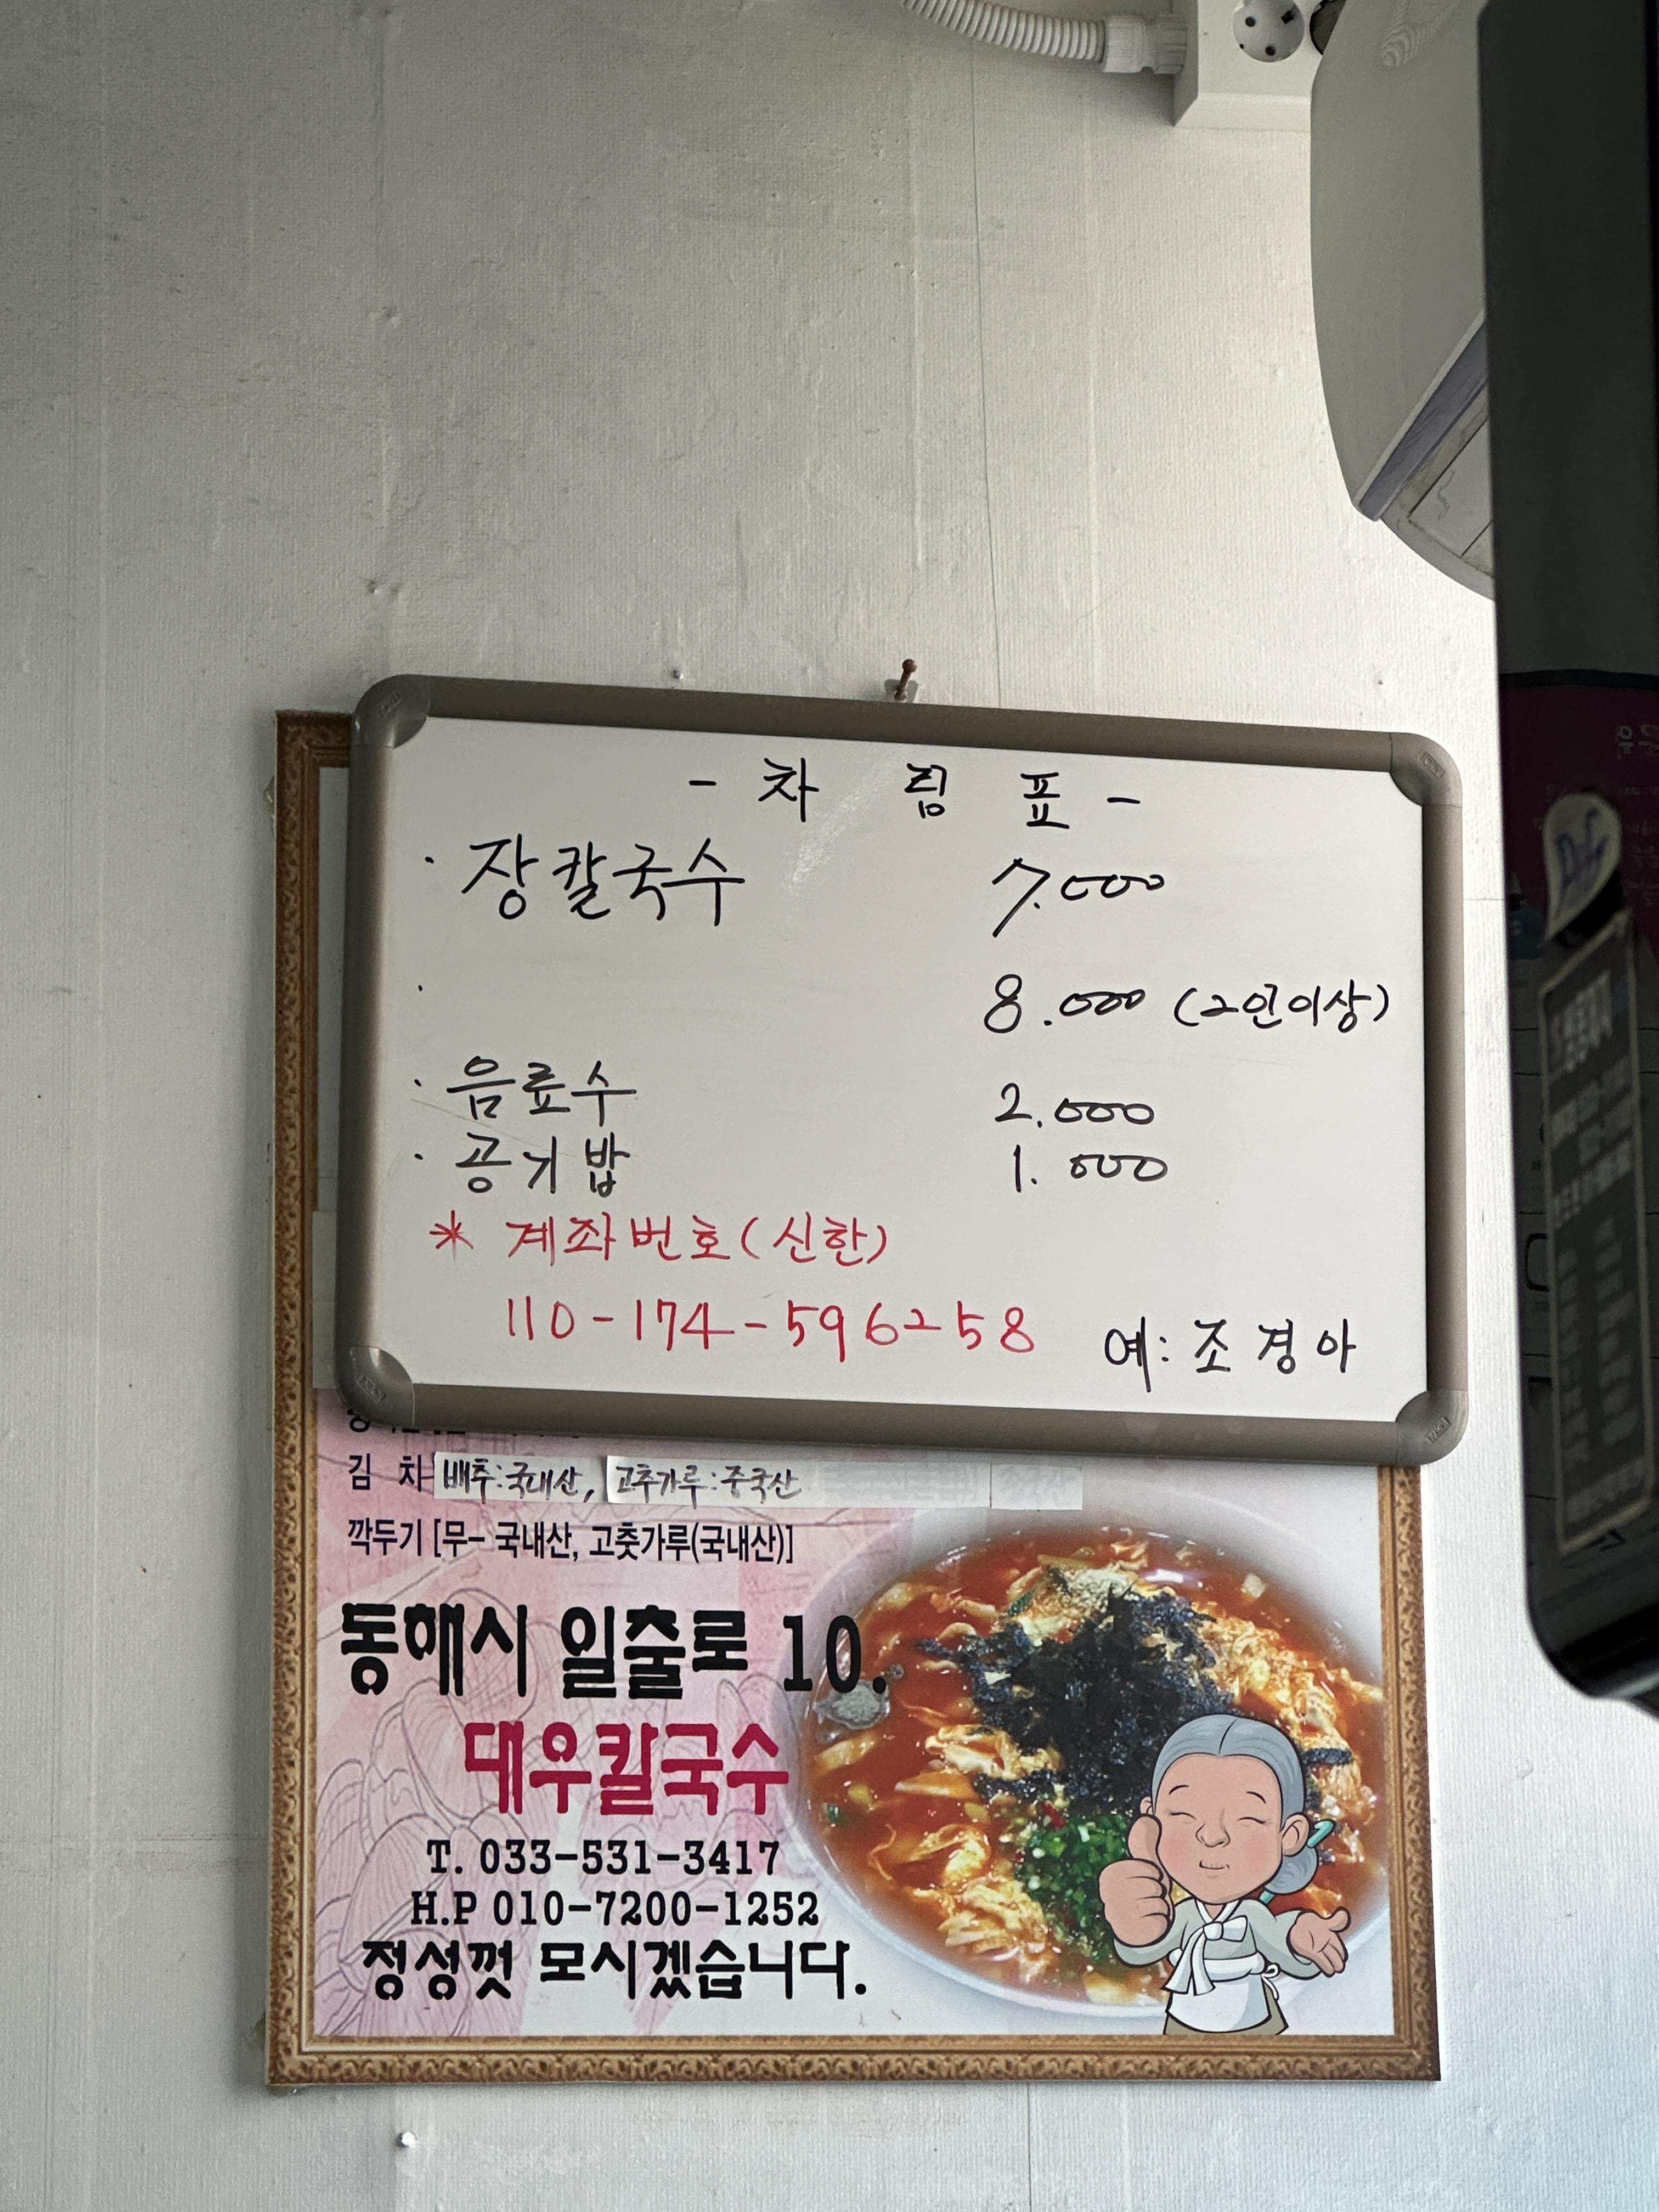 - 차 림 표 -
· 장칼국수 7.000
· 8.000 (2인이상)
· 음료수 2.000
· 공기밥 1.000
* 계좌번호(신한)
110-174-596258 예: 조경아
김 차 배추:국내산, 고추가루:중국산
깍두기 [무- 국내산, 고춧가루(국내산)]
동해시 일출로 10.
대우칼국수
T. 033-531-3417
H.P 010-7200-1252
정성껏 모시겠습니다.